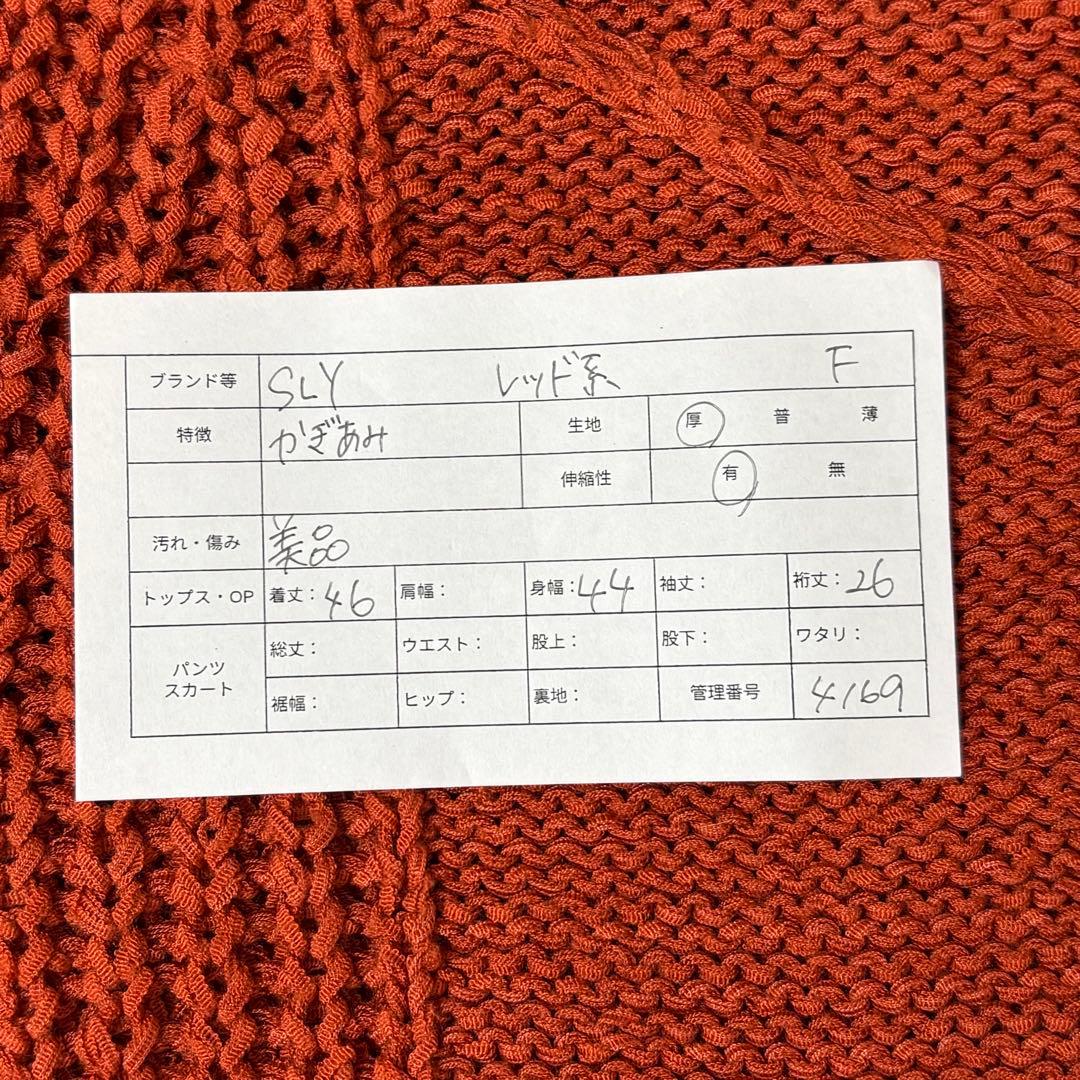 ブランド等 SLY レッド系 F
特徴 かぎあみ 生地 厚 普 薄
伸縮性 有 無
汚れ・傷み 美品
トップス・OP 着丈：46 肩幅： 身幅：44 袖丈： 裄丈：26
パンツ スカート 総丈： ウエスト： 股上： 股下： ワタリ：
裾幅： ヒップ： 裏地： 管理番号 4169